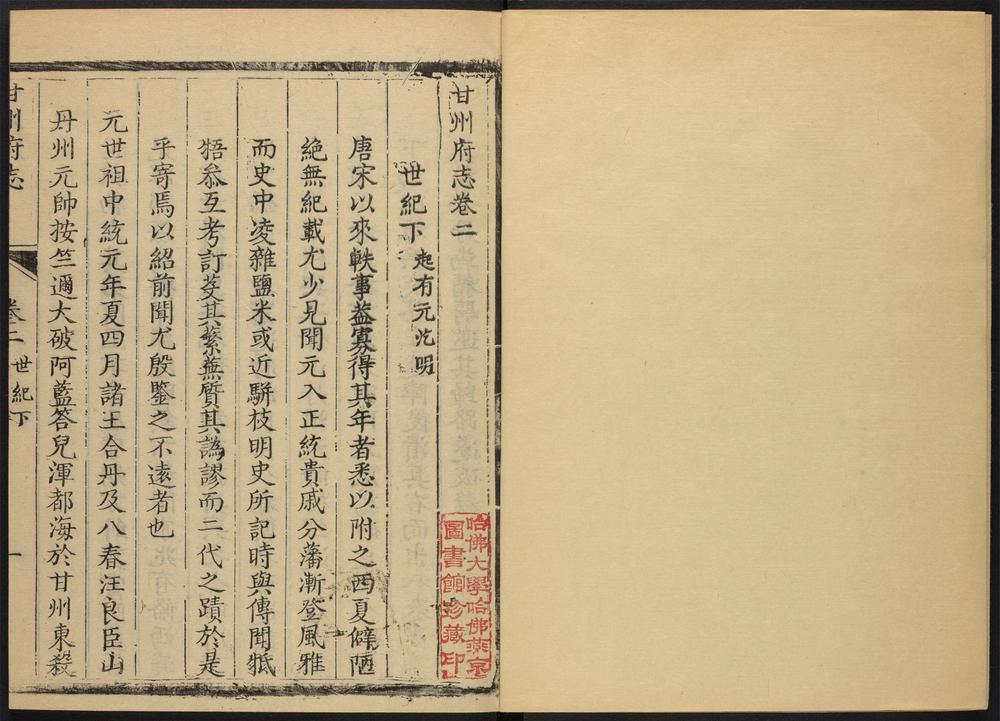 甘州府志卷二
世紀下 起有元訖明
唐宋以來軼事益寡得其年者悉以附之西夏僻陋
絶無紀載尤少見聞元入正統貴戚分藩漸登風雅
而史中凌雜鹽米或近駢枝明史所記時與傳聞牴
牾叅互考訂芟其蘩蕪質其譌謬而二代之蹟於是
乎寄焉以紹前聞尤殷鑒之不遠者也
元世祖中統元年夏四月諸王合丹及八春汪良臣山
丹州元帥按竺邇大破阿藍答兒渾都海於甘州東殺
甘州府志
卷二 世紀下
一
哈佛大學哈佛燕京
圖書館珍藏印